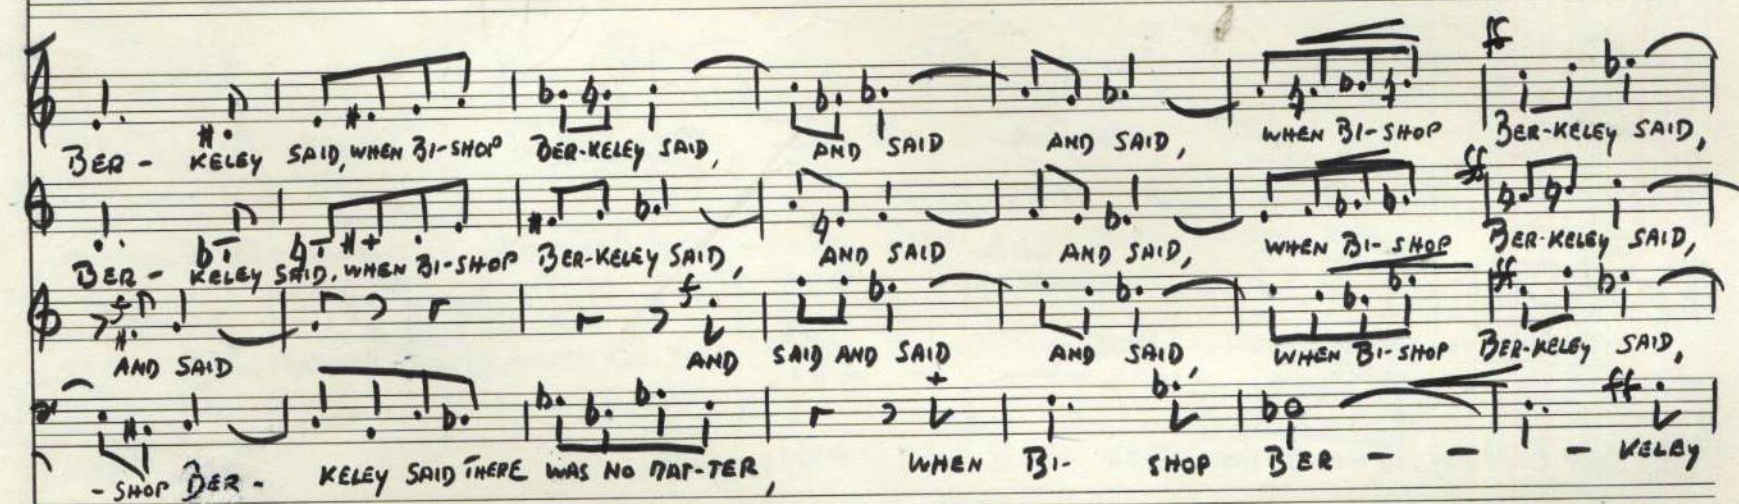 BER - KELEY SAID, WHEN BI-SHOP BER-KELEY SAID, AND SAID AND SAID, WHEN BI-SHOP BER-KELEY SAID,
BER - KELEY SAID, WHEN BI-SHOP BER-KELEY SAID, AND SAID AND SAID, WHEN BI-SHOP BER-KELEY SAID,
AND SAID AND SAID AND SAID AND SAID, WHEN BI-SHOP BER-KELEY SAID,
-SHOP BER- KELEY SAID THERE WAS NO MAT-TER, WHEN BI- SHOP BER - - - KELEY